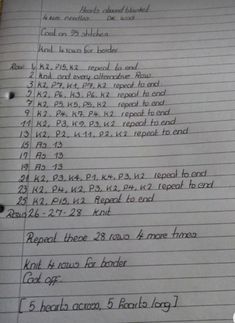 Hearts abound blanket
4 mm needles DK wool
Cast on 99 stitches
Knit 4 rows for border
Row 1, K2, P15, K2 repeat to end
2 Knit and every alternative Row
3 K2, P7, K1, P7, K2 repeat to end.
5 K2, P6, K3, P6, K2 repeat to end.
7 K2, P5, K5, P5, K2 repeat to end.
9 K2, P4, K7, P4, K2 repeat to end.
11 K2, P3, K9, P3, K2 repeat to end.
13 K2, P2, K11, P2, K2 repeat to end
15 As 13
17 As 13
19 As 13
21 K2, P3, K4, P1, K4, P3, K2 repeat to end
23 K2, P4, K2, P3, K2, P4, K2 repeat to end
25 K2, P15, K2 Repeat to end
Rows 26 - 27 - 28 Knit
Repeat these 28 rows 4 more times
Knit 4 rows for border
Cast off.
[5 hearts across, 5 hearts long]